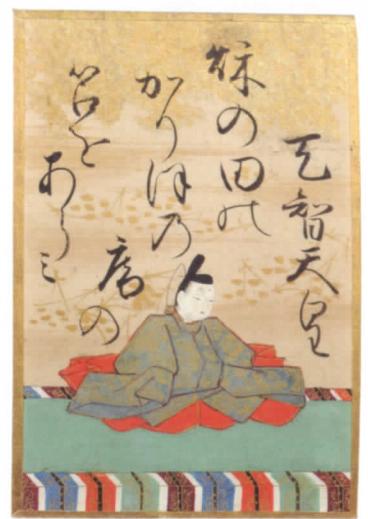 天智天皇
秌の田の
かりほ乃
庵の
苫を
あらみ